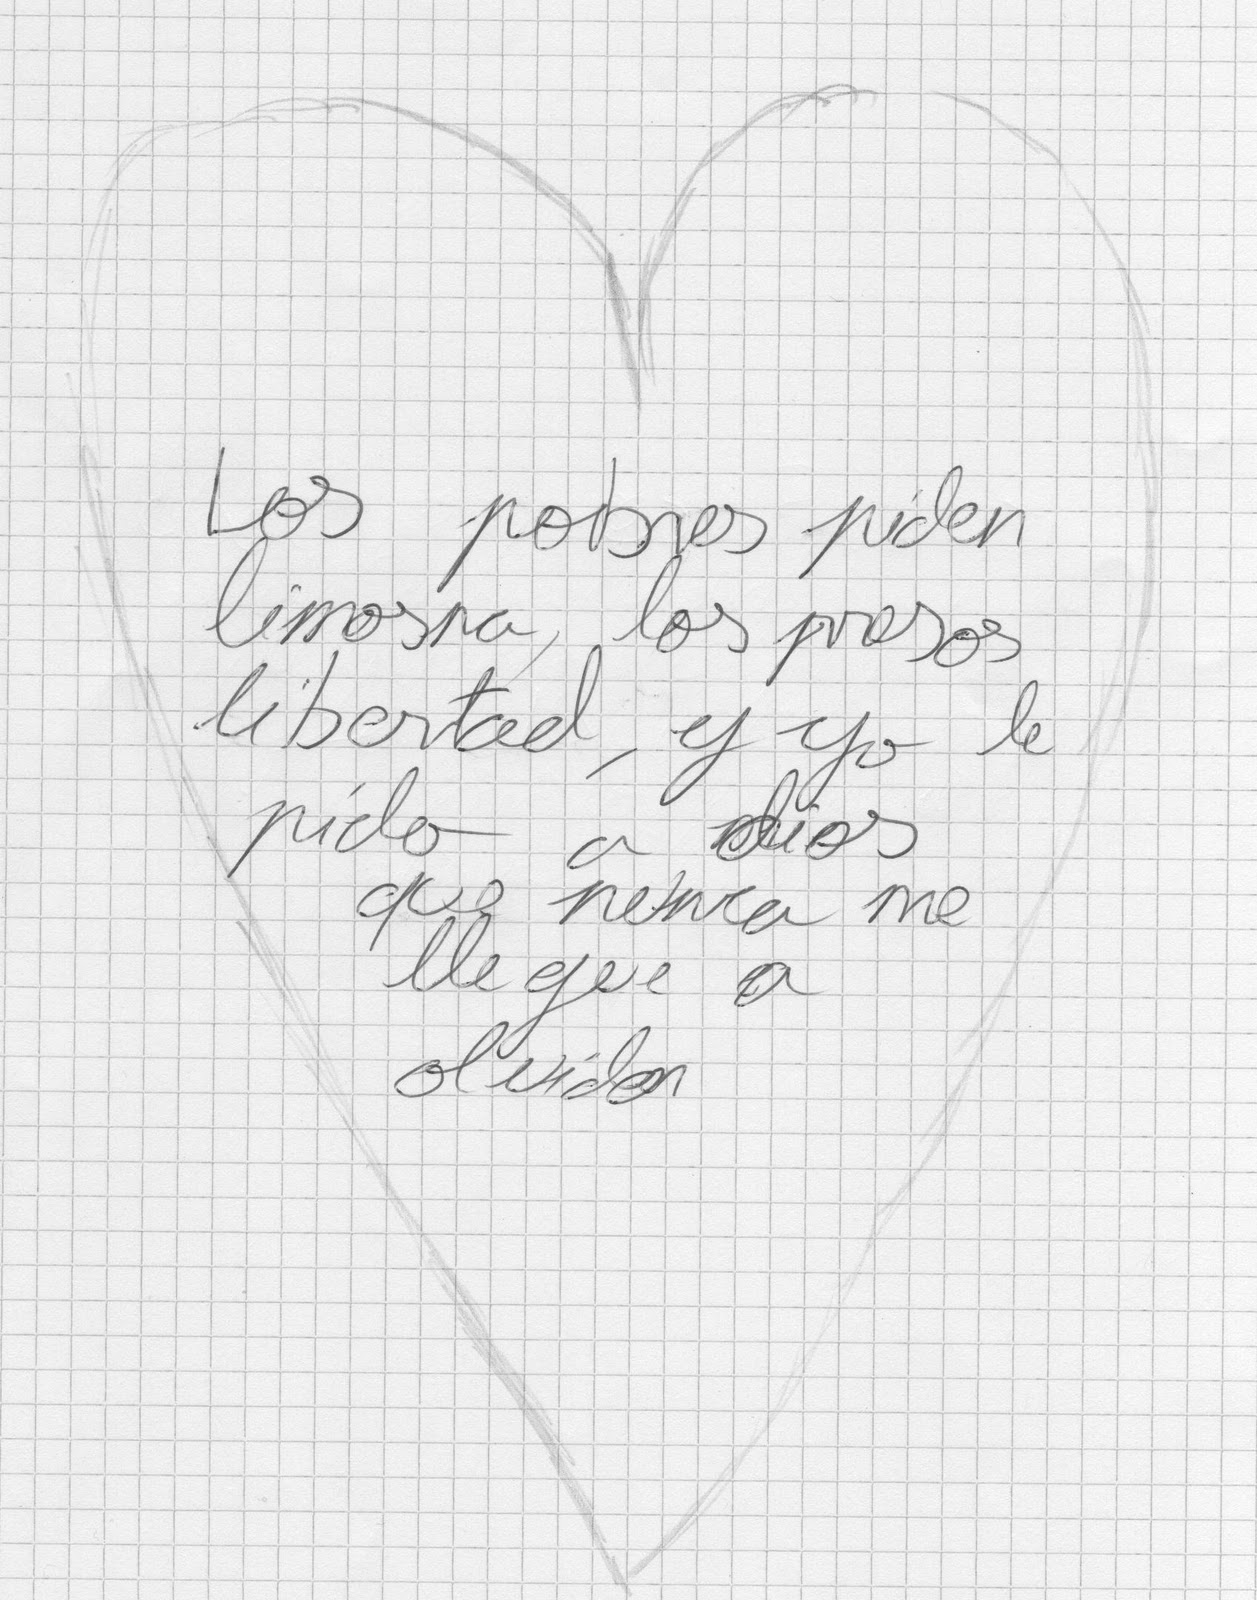 Los pobres piden
limosna, los presos
libertad, y yo le
pido a dios
que nunca me
llegue a
olvidar